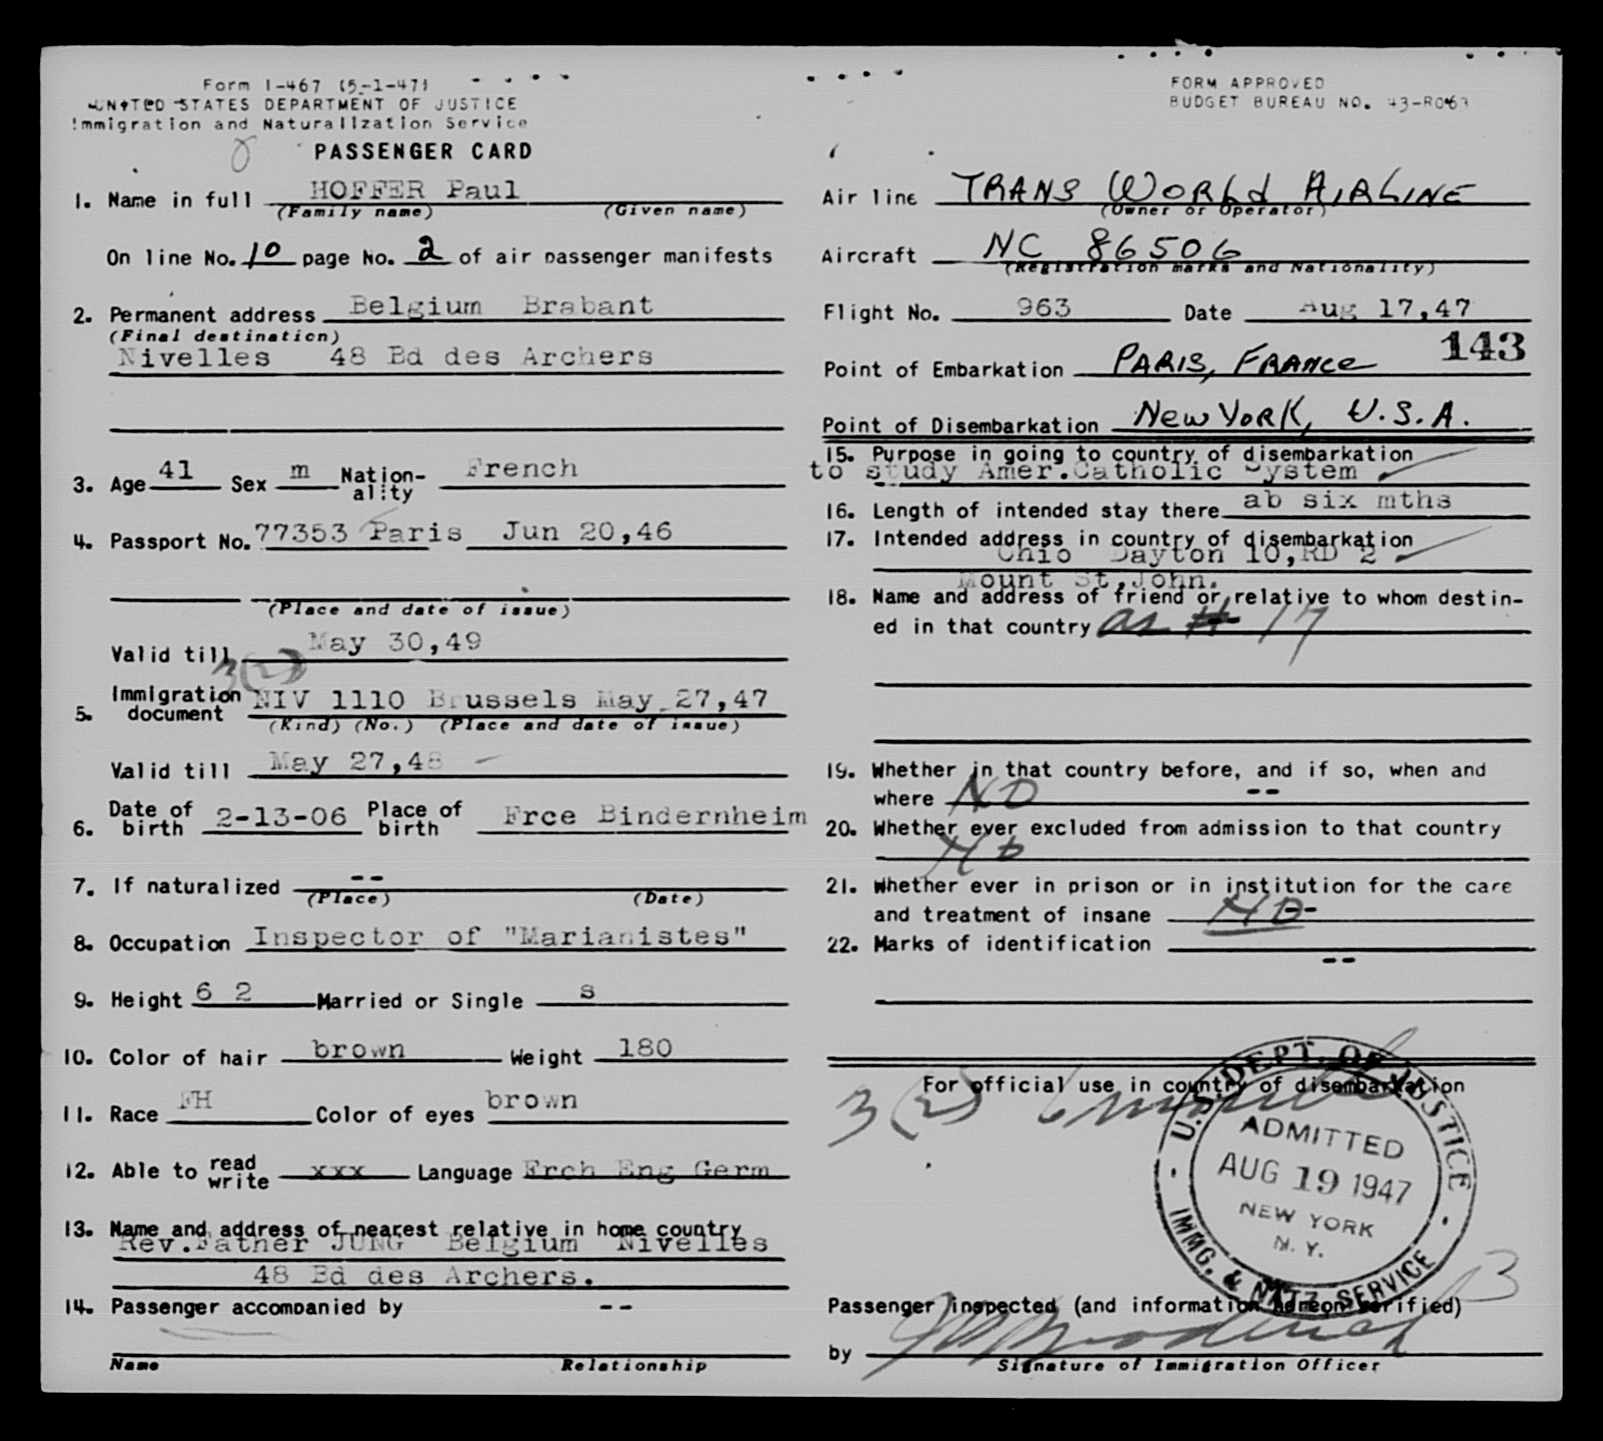 Form I-467 (5-1-47)
UNITED STATES DEPARTMENT OF JUSTICE
Immigration and Naturalization Service
PASSENGER CARD
1. Name in full HOFFER Paul
(Family name) (Given name)
On line No. 10 page No. 2 of air passenger manifests
2. Permanent address Belgium Brabant
(Final destination)
Nivelles 48 Bd des Archers
3. Age 41 Sex m Nation-ality French
4. Passport No. 77353 Paris Jun 20,46
(Place and date of issue)
Valid till May 30,49
3(2)
5. Immigration document NIV 1110 Brussels May 27,47
(Kind) (No.) (Place and date of issue)
Valid till May 27,48
6. Date of birth 2-13-06 Place of birth Frce Bindernheim
7. If naturalized --
(Place) (Date)
8. Occupation Inspector of "Marianistes"
9. Height 6 2 Married or Single s
10. Color of hair brown Weight 180
11. Race FH Color of eyes brown
12. Able to read write xxx Language Frch Eng Germ
13. Name and address of nearest relative in home country
Rev.Father JUNG Belgium Nivelles
48 Bd des Archers.
14. Passenger accompanied by --
Name Relationship
FORM APPROVED
BUDGET BUREAU NO. 43-R063
Air line TRANS WORLD AIRLINE
(Owner or Operator)
Aircraft NC 86506
(Registration marks and Nationality)
Flight No. 963 Date Aug 17,47
143
Point of Embarkation PARIS, FRANCE
Point of Disembarkation New YORK, U.S.A.
15. Purpose in going to country of disembarkation
to study Amer.Catholic System
16. Length of intended stay there ab six mths
17. Intended address in country of disembarkation
Ohio Dayton 10,RD 2
Mount St.John.
18. Name and address of friend or relative to whom destin-
ed in that country as # 17
19. Whether in that country before, and if so, when and
where NO --
20. Whether ever excluded from admission to that country
No
21. Whether ever in prison or in institution for the care
and treatment of insane No --
22. Marks of identification
--
For official use in country of disembarkation
3(2) 6 months
U.S. DEPT. OF JUSTICE
ADMITTED
AUG 19 1947
NEW YORK
N.Y.
IMMG. & NATZ. SERVICE
3
Passenger inspected (and information hereon verified)
by
Signature of Immigration Officer